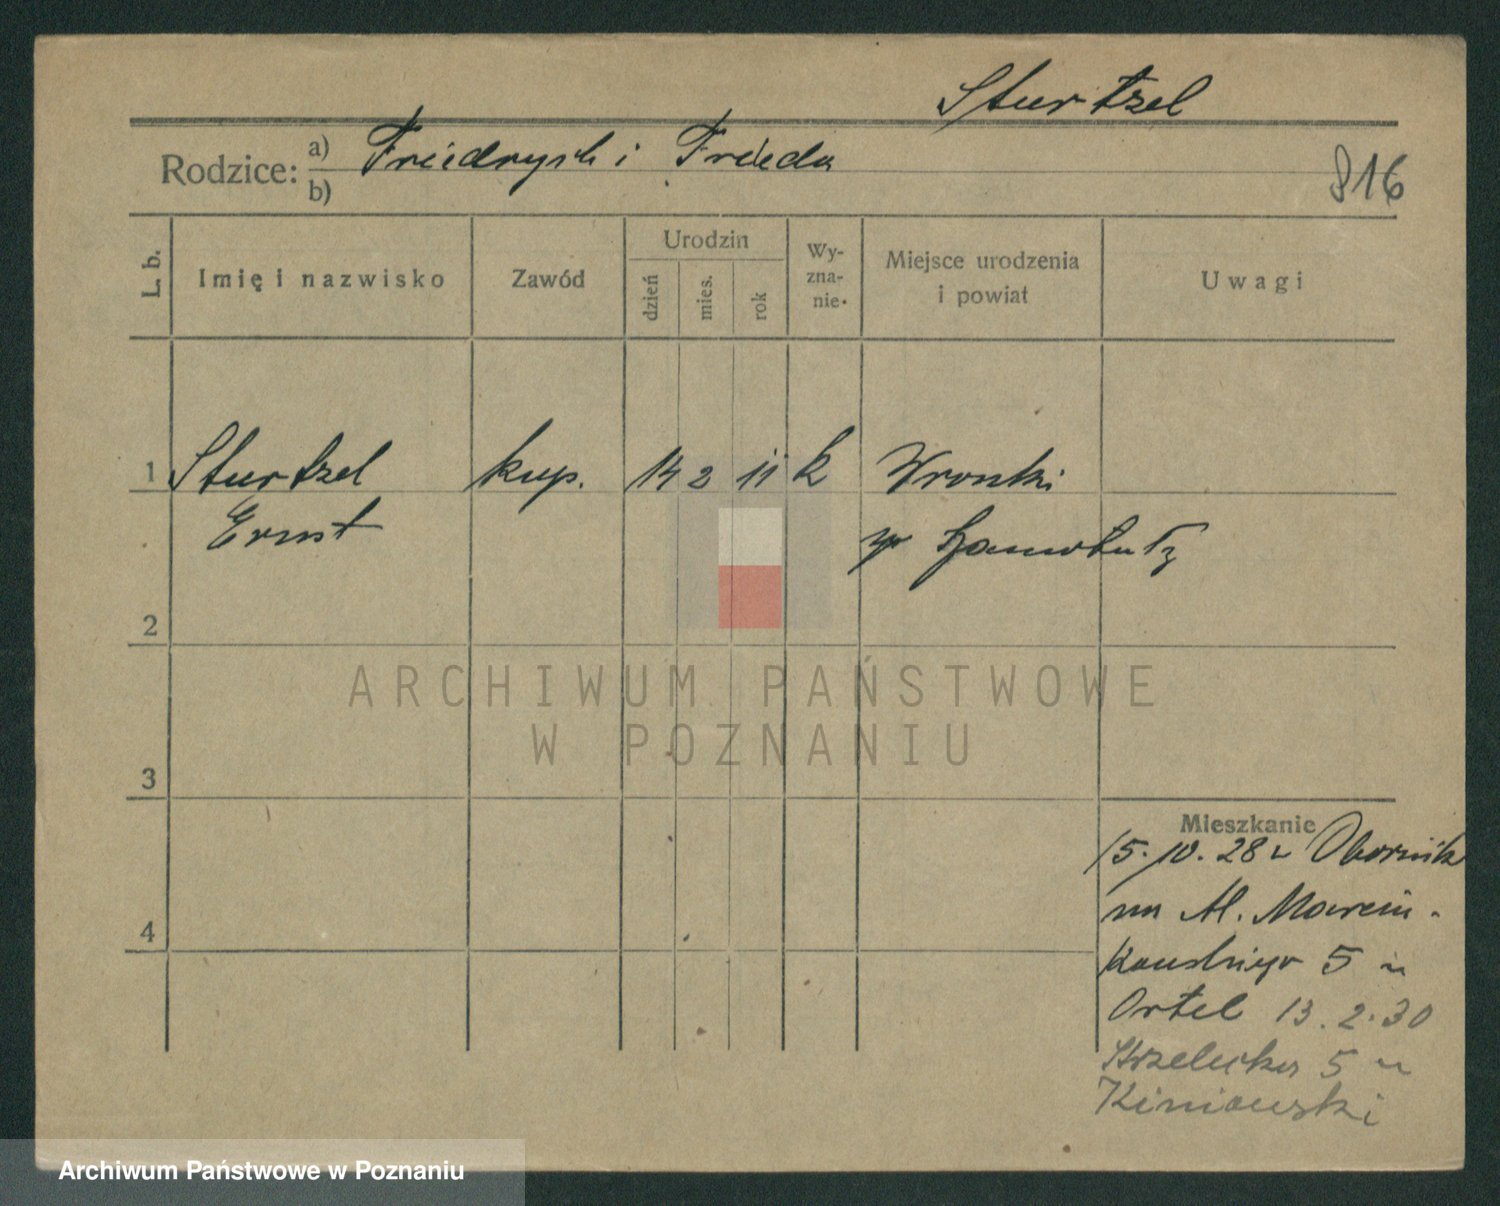 Sturtzel
Rodzice: a) Friedrych i Frieda
b)
816
L. b.
Imię i nazwisko
Zawód
Urodzin
dzień
mies.
rok
Wy-
zna-
nie.
Miejsce urodzenia
i powiat
Uwagi
1 Sturtzel kup. 14 2 11 k Wronki
Ernst
2
ARCHIWUM PAŃSTWOWE
W POZNANIU
3
Mieszkanie
15.10.28 z Obornik
na Al. Marcin-
4
kowskiego 5 u
Ortel 13.2.30
Strzelecka 5 u
Archiwum Państwowe w Poznaniu